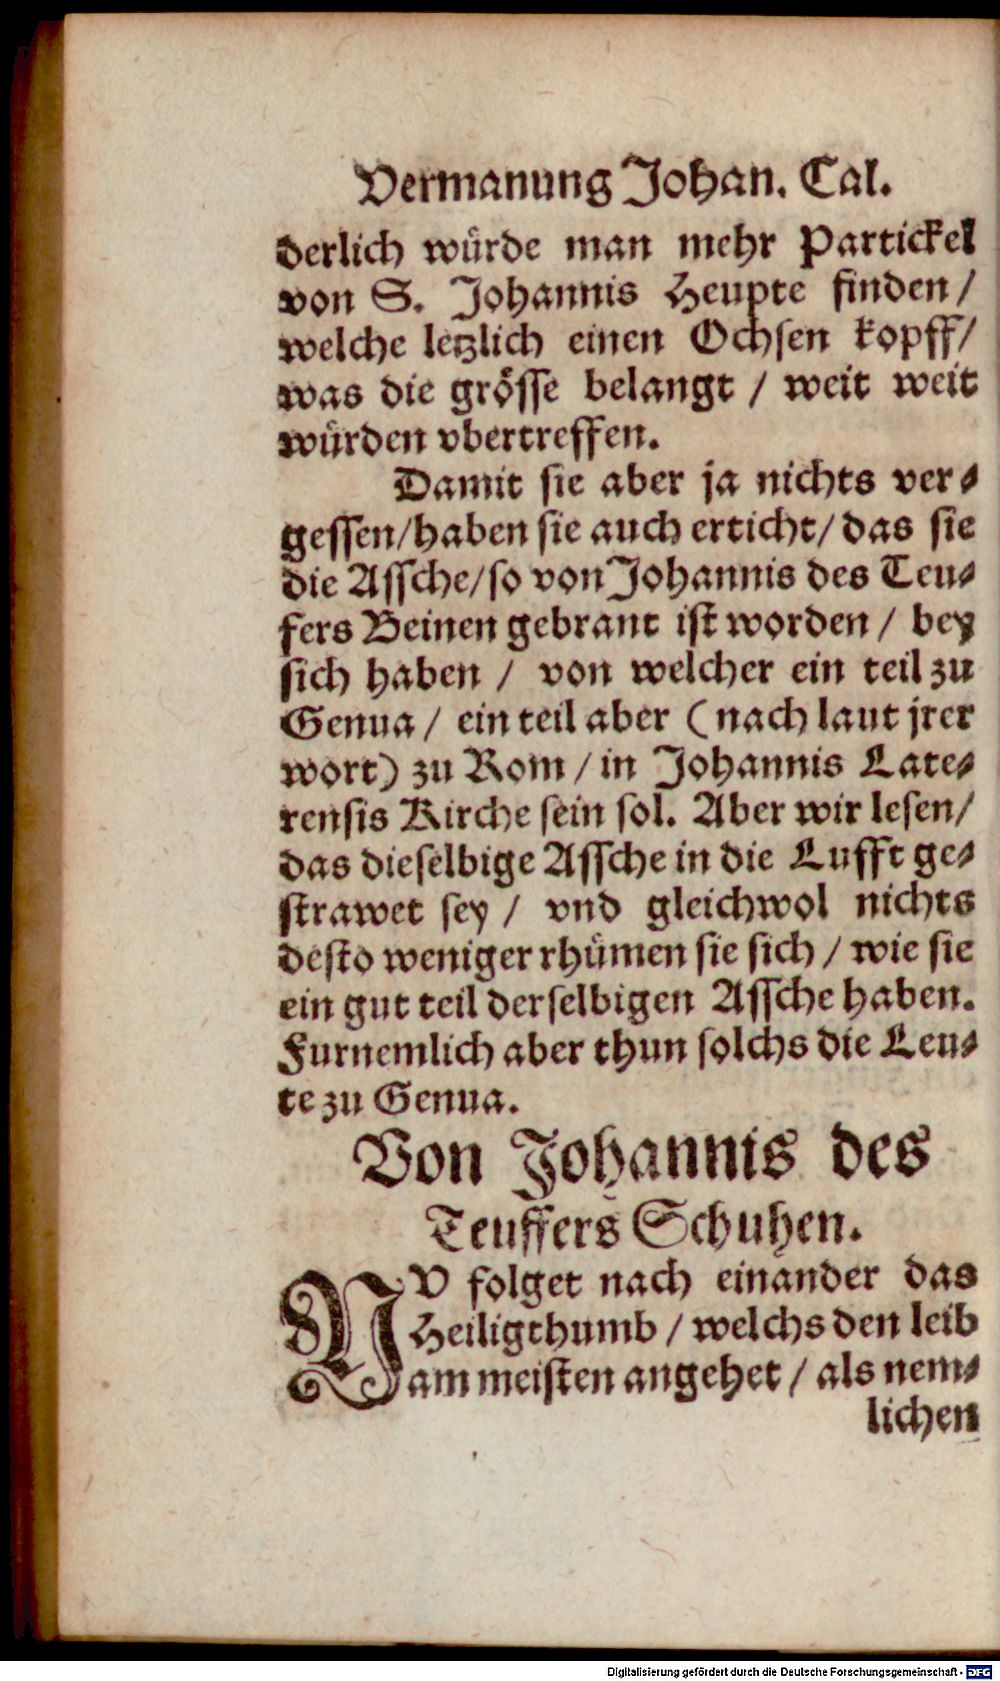 Vermanung Johan. Cal.
derlich würde man mehr Partickel
von S. Johannis Heupte finden /
welche letzlich einen Ochsen kopff /
was die grösse belangt / weit weit
würden vbertreffen.
Damit sie aber ja nichts ver-
gessen / haben sie auch erticht / das sie
die Assche / so von Johannis des Teu-
fers Beinen gebrant ist worden / bey
sich haben / von welcher ein teil zu
Genua / ein teil aber (nach laut jrer
wort) zu Rom / in Johannis Late-
rensis Kirche sein sol. Aber wir lesen /
das dieselbige Assche in die Lufft ge-
strawet sey / vnd gleichwol nichts
desto weniger rhümen sie sich / wie sie
ein gut teil derselbigen Assche haben.
Furnemlich aber thun solchs die Leu-
te zu Genua.
Von Johannis des
Teuffers Schuhen.
NV folget nach einander das
Heiligthumb / welchs den leib
am meisten angehet / als nem-
lichen
Digitalisierung gefördert durch die Deutsche Forschungsgemeinschaft - DFG